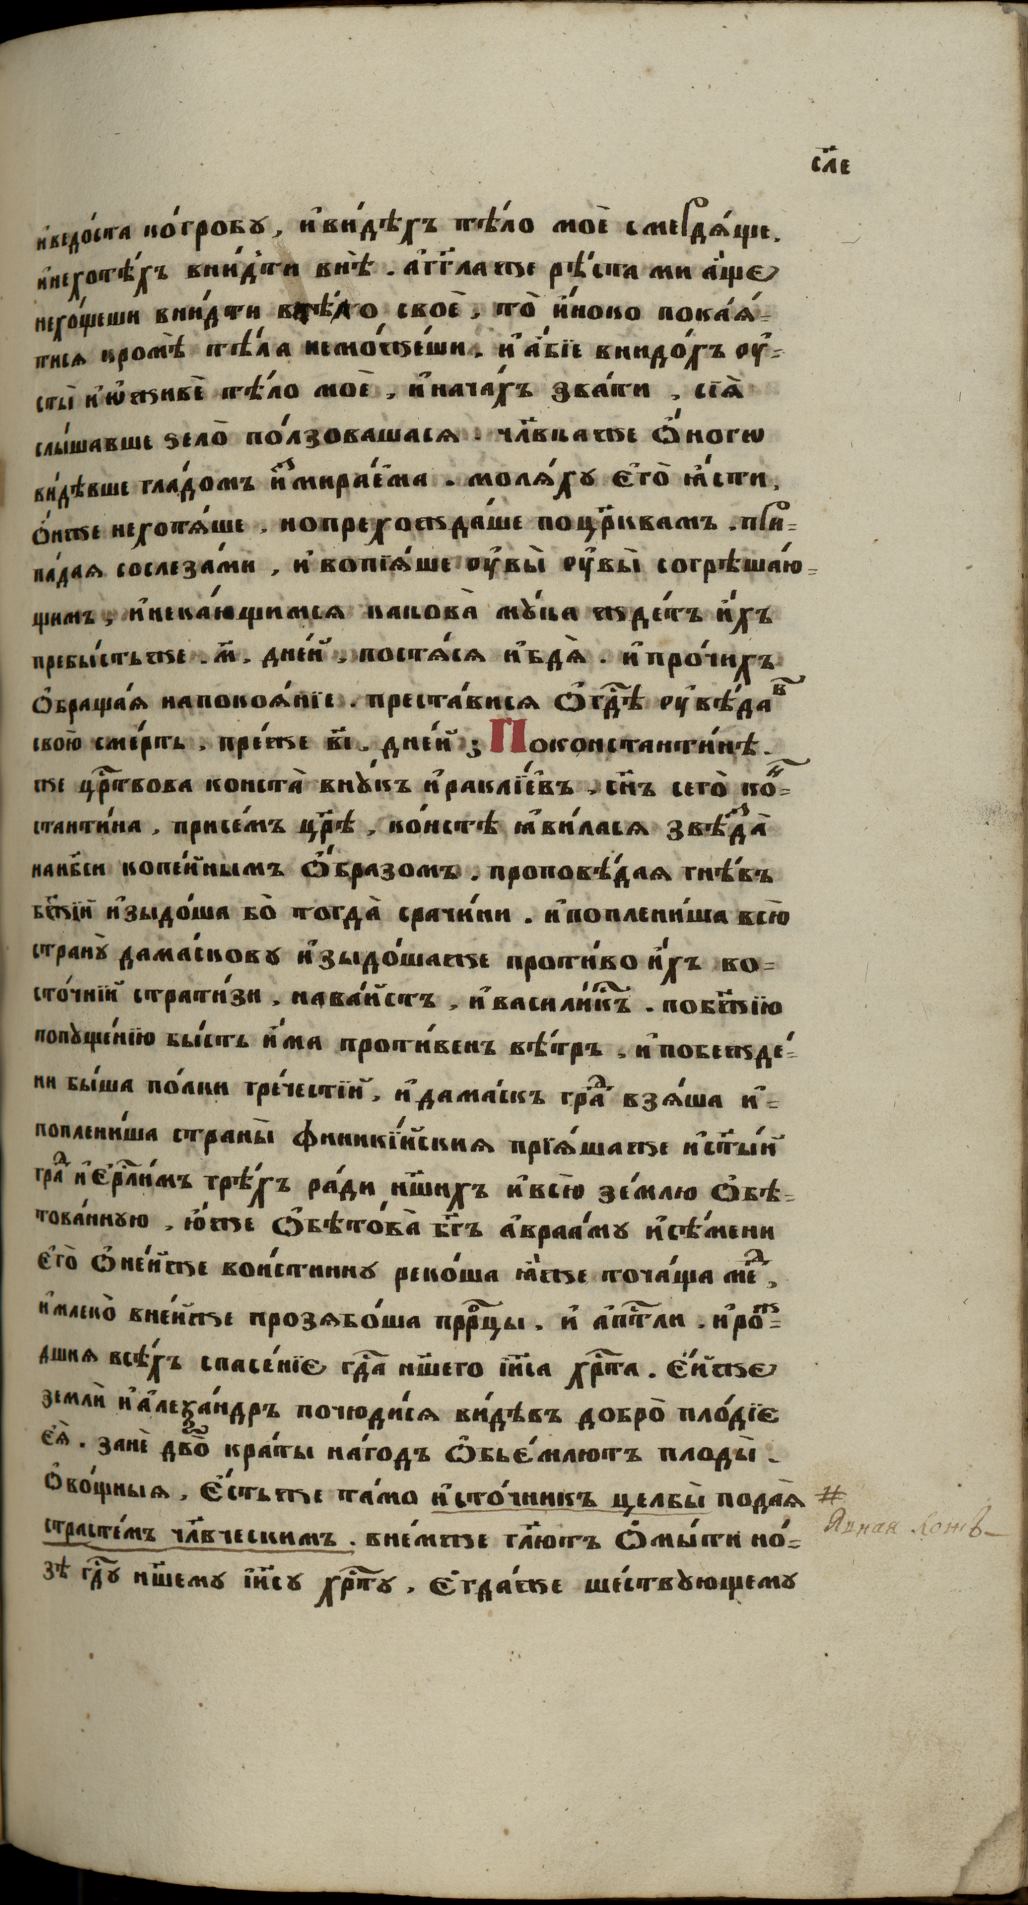 сл҃е
и҆ведо́ста ко́гробꙋ, и҆ви́дѣхъ тѣ́ло моѐ смердѧ́ще,
и҆нехотѣ́хъ вни́дти внѐ. а҆гг҃лаже рѣ́ста ми а҆́ще
нехо́щеши вни́дти втѣ́ло своѐ, то̀ и҆́ноко пока́ѧ-
тисѧ кромѣ̀ тѣ́ла немо́жеши. и҆ а҆́бїе внидо́хъ ᲂу҆-
сты̀ и҆ѡ҆живѐ тѣ́ло моѐ, и҆нача́хъ зва́ти, сїѧ̀
слы́шавше ѕело̀ по́лзовашасѧ. чл҃вкаже ѻ҆́ного
ви́дѣвше гла́домъ и҆змира́ема. молѧ́хꙋ є҆го̀ ꙗ҆́сти,
ѻ҆́нже нехотѧ́ше, нопрехожда́ше поцр҃квамъ. при-
па́даѧ сослеза́ми, и҆ вопїѧ́ше ᲂу҆вы̀ ᲂу҆вы̀ согрѣша́ю-
щимъ, и҆нека́ющимсѧ какова̀ мꙋ́ка ждетъ и҆́хъ
пребы́стьже. м҃. дне́й, постѧ́сѧ и҆бдѧ̀. и҆ про́чихъ
ѡ҆браща́ѧ напокоѧ́нїе. преста́висѧ ѻ҆гд҃ѣ ᲂу҆вѣ́давъ
свою̀ сме́рть. пре́же в҃і. дне́й ; Поконстанти́нѣ.
же цр҃твова конста̀ внꙋ́къ и҆ракли́евъ, сн҃ъ сего̀ ко́н-
станти́на, присе́мъ цр҃ѣ, ко́нстѣ ꙗ҆ви́ласѧ звѣзда̀
нанб҃си копе́йнымъ ѻ҆́бразомъ. проповѣ́даѧ гнѣ́въ
бж҃їй и҆зыдо́ша бо̀ тогда̀ срачи́ни. и҆поплени́ша всю̀
странꙋ̀ дама́сковꙋ и҆зыдо́шаже проти́во и҆́хъ во-
сто́чнїй страти́зи, нава́истъ, и҆ васили́скъ. побж҃їю
попꙋще́нїю бы́сть и҆́ма проти́венъ вѣ́тръ, и҆ побежде́-
ни бы́ша по́лки гре́честїй, и҆ дама́скъ гра́дъ взѧ́ша и҆-
поплени́ша страны̀ финики́йскиѧ прїѧ́шаже и҆ст҃ы́й
гра́дъ и҆є҆рл҃и́мъ грѣ́хъ ра́ди нш҃ихъ и҆всю̀ зе́млю ѡ҆бѣ-
това́ннꙋю, ю҆́же ѡ҆бѣтова̀ бг҃ъ а҆враа́мꙋ и҆сѣ́мени
є҆го̀ ѻ҆не́йже вои́стиннꙋ реко́ша ꙗ҆́же точа́ща ме́дъ,
и҆млеко̀ вне́йже прозѧбо́ша прⷪ҇рцы. и҆ а҆пⷭ҇тли. и҆рож-
дшиѧ всѣ́хъ спасе́нїе гд҃а нш҃его і҆и҃са хр҃та. є҆́йже
землѝ и҆а҆леѯа́ндръ почюди́сѧ ви́дѣвъ добро̀ пло́дїе
є҆ѧ̀. занѐ дво̀ кра́ты на́годъ ѻ҆бье́млютъ плоды̀.
ѻ҆во́щныѧ, є҆́стьже та́мо и҆сто́чникъ целбы̀ подаѧ̀ #
Явная ложь
страсте́мъ чл҃вческимъ. вне́мже гл҃ютъ ѻ҆мы́ти но́-
зѣ гд҃ꙋ нш҃емꙋ і҆и҃сꙋ хр҃тꙋ. є҆гда́же ше́ствꙋющемꙋ